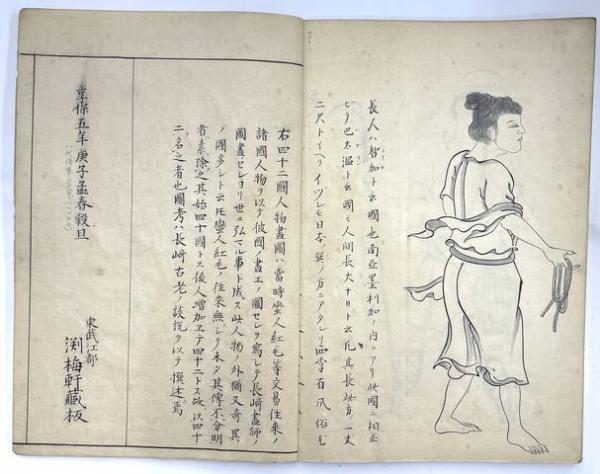 長人ハ智加ト云國也南亞墨利加ノ内ニアリ此國ニ相並
ヒテ巴太温ト云國モ人間長大ナリト云凡其長皆一丈
二尺トイヘリイヅレモ日本ノ巽ノ方ニアタレリ四季有風俗も
右四十二國人物畫圖ハ當時蛮人紅毛等交易往来ノ
諸國人物ヲ以テ彼國ノ畫工ノ圖セシヲ寫シテ長崎畫師ノ
圖畫セシヨリ世ニ弘マル事ト成ス此人物ノ外猶又奇異
ノ國多シト云圧蠻人紅毛ノ往来無シテ未タ其傳不分明
者素除之其始四十國トス後人増加ヱテ四十二トス故以四十
二名之者也圖考ハ長崎古老ノ談説ヲ以テ撰述焉
享保五年庚子孟春穀旦
東武江都
渕梅軒藏板